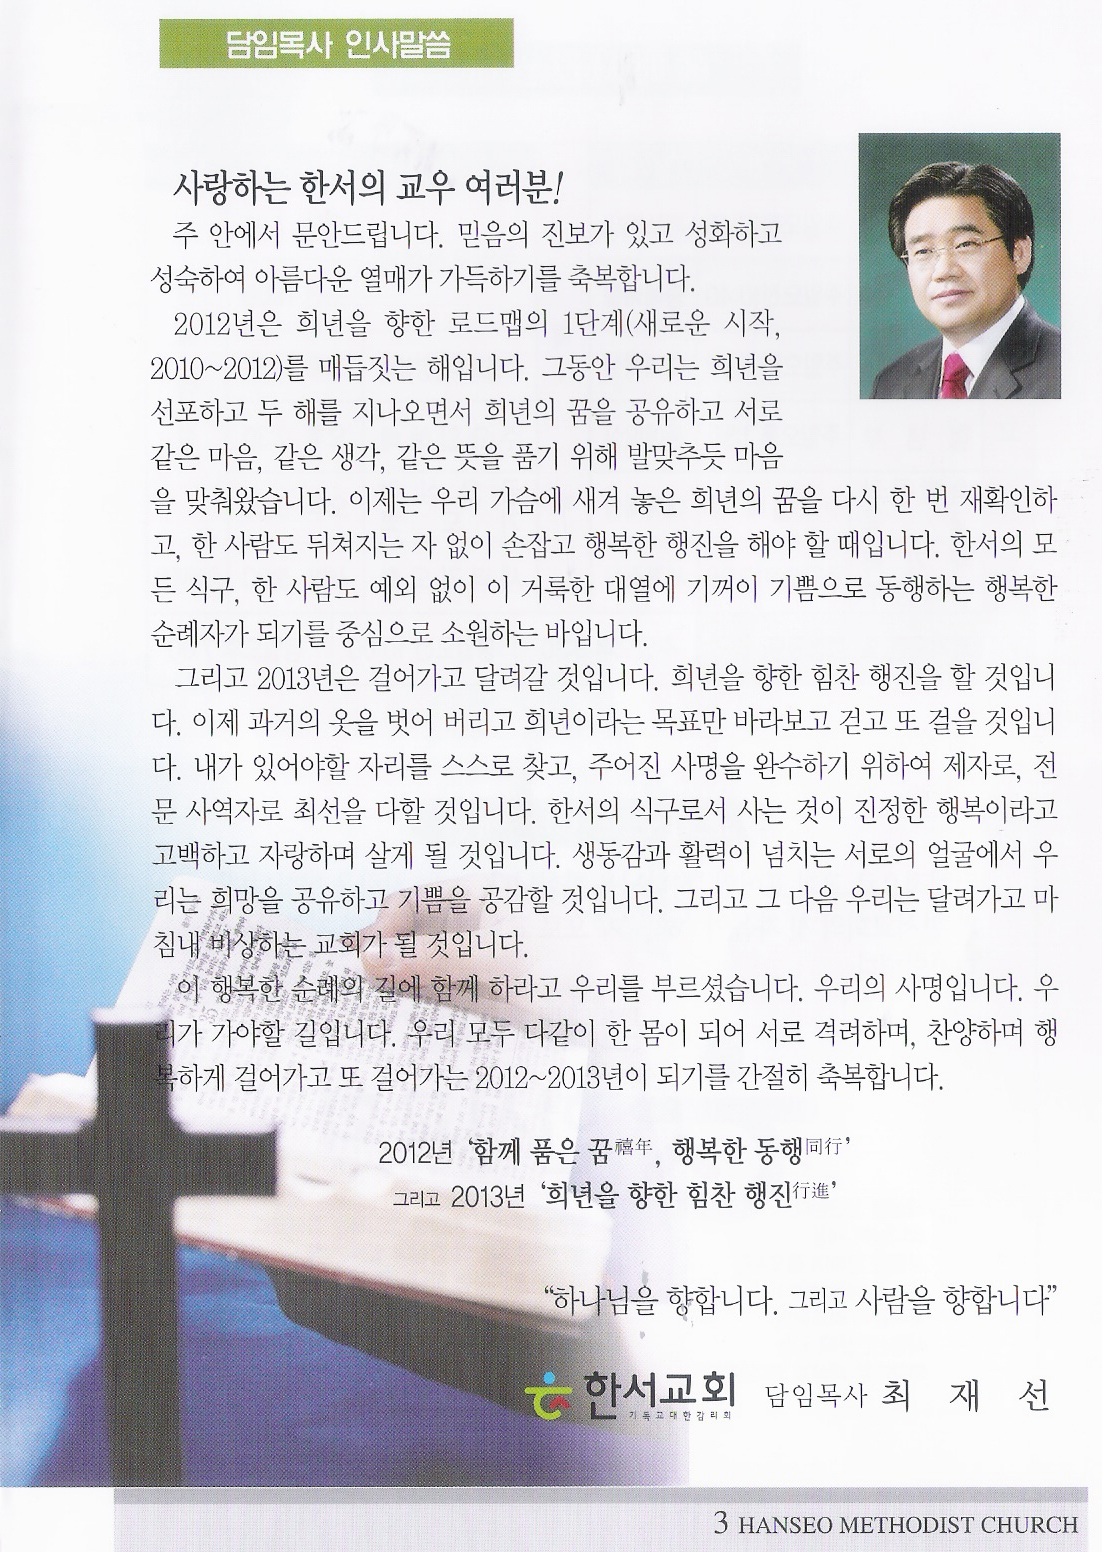 담임목사 인사말씀
사랑하는 한서의 교우 여러분!
주 안에서 문안드립니다. 믿음의 진보가 있고 성화하고
성숙하여 아름다운 열매가 가득하기를 축복합니다.
2012년은 희년을 향한 로드맵의 1단계(새로운 시작,
2010~2012)를 매듭짓는 해입니다. 그동안 우리는 희년을
선포하고 두 해를 지나오면서 희년의 꿈을 공유하고 서로
같은 마음, 같은 생각, 같은 뜻을 품기 위해 발맞추듯 마음
을 맞춰왔습니다. 이제는 우리 가슴에 새겨 놓은 희년의 꿈을 다시 한 번 재확인하
고, 한 사람도 뒤쳐지는 자 없이 손잡고 행복한 행진을 해야 할 때입니다. 한서의 모
든 식구, 한 사람도 예외 없이 이 거룩한 대열에 기꺼이 기쁨으로 동행하는 행복한
순례자가 되기를 중심으로 소원하는 바입니다.
그리고 2013년은 걸어가고 달려갈 것입니다. 희년을 향한 힘찬 행진을 할 것입니
다. 이제 과거의 옷을 벗어 버리고 희년이라는 목표만 바라보고 걷고 또 걸을 것입니
다. 내가 있어야할 자리를 스스로 찾고, 주어진 사명을 완수하기 위하여 제자로, 전
문 사역자로 최선을 다할 것입니다. 한서의 식구로서 사는 것이 진정한 행복이라고
고백하고 자랑하며 살게 될 것입니다. 생동감과 활력이 넘치는 서로의 얼굴에서 우
리는 희망을 공유하고 기쁨을 공감할 것입니다. 그리고 그 다음 우리는 달려가고 마
침내 비상하는 교회가 될 것입니다.
이 행복한 순례의 길에 함께 하라고 우리를 부르셨습니다. 우리의 사명입니다. 우
리가 가야할 길입니다. 우리 모두 다같이 한 몸이 되어 서로 격려하며, 찬양하며 행
복하게 걸어가고 또 걸어가는 2012~2013년이 되기를 간절히 축복합니다.
2012년 ‘함께 품은 꿈禧年, 행복한 동행同行’
그리고 2013년 ‘희년을 향한 힘찬 행진行進’
“하나님을 향합니다. 그리고 사람을 향합니다”
한서교회 담임목사 최 재 선
기독교대한감리회
3 HANSEO METHODIST CHURCH